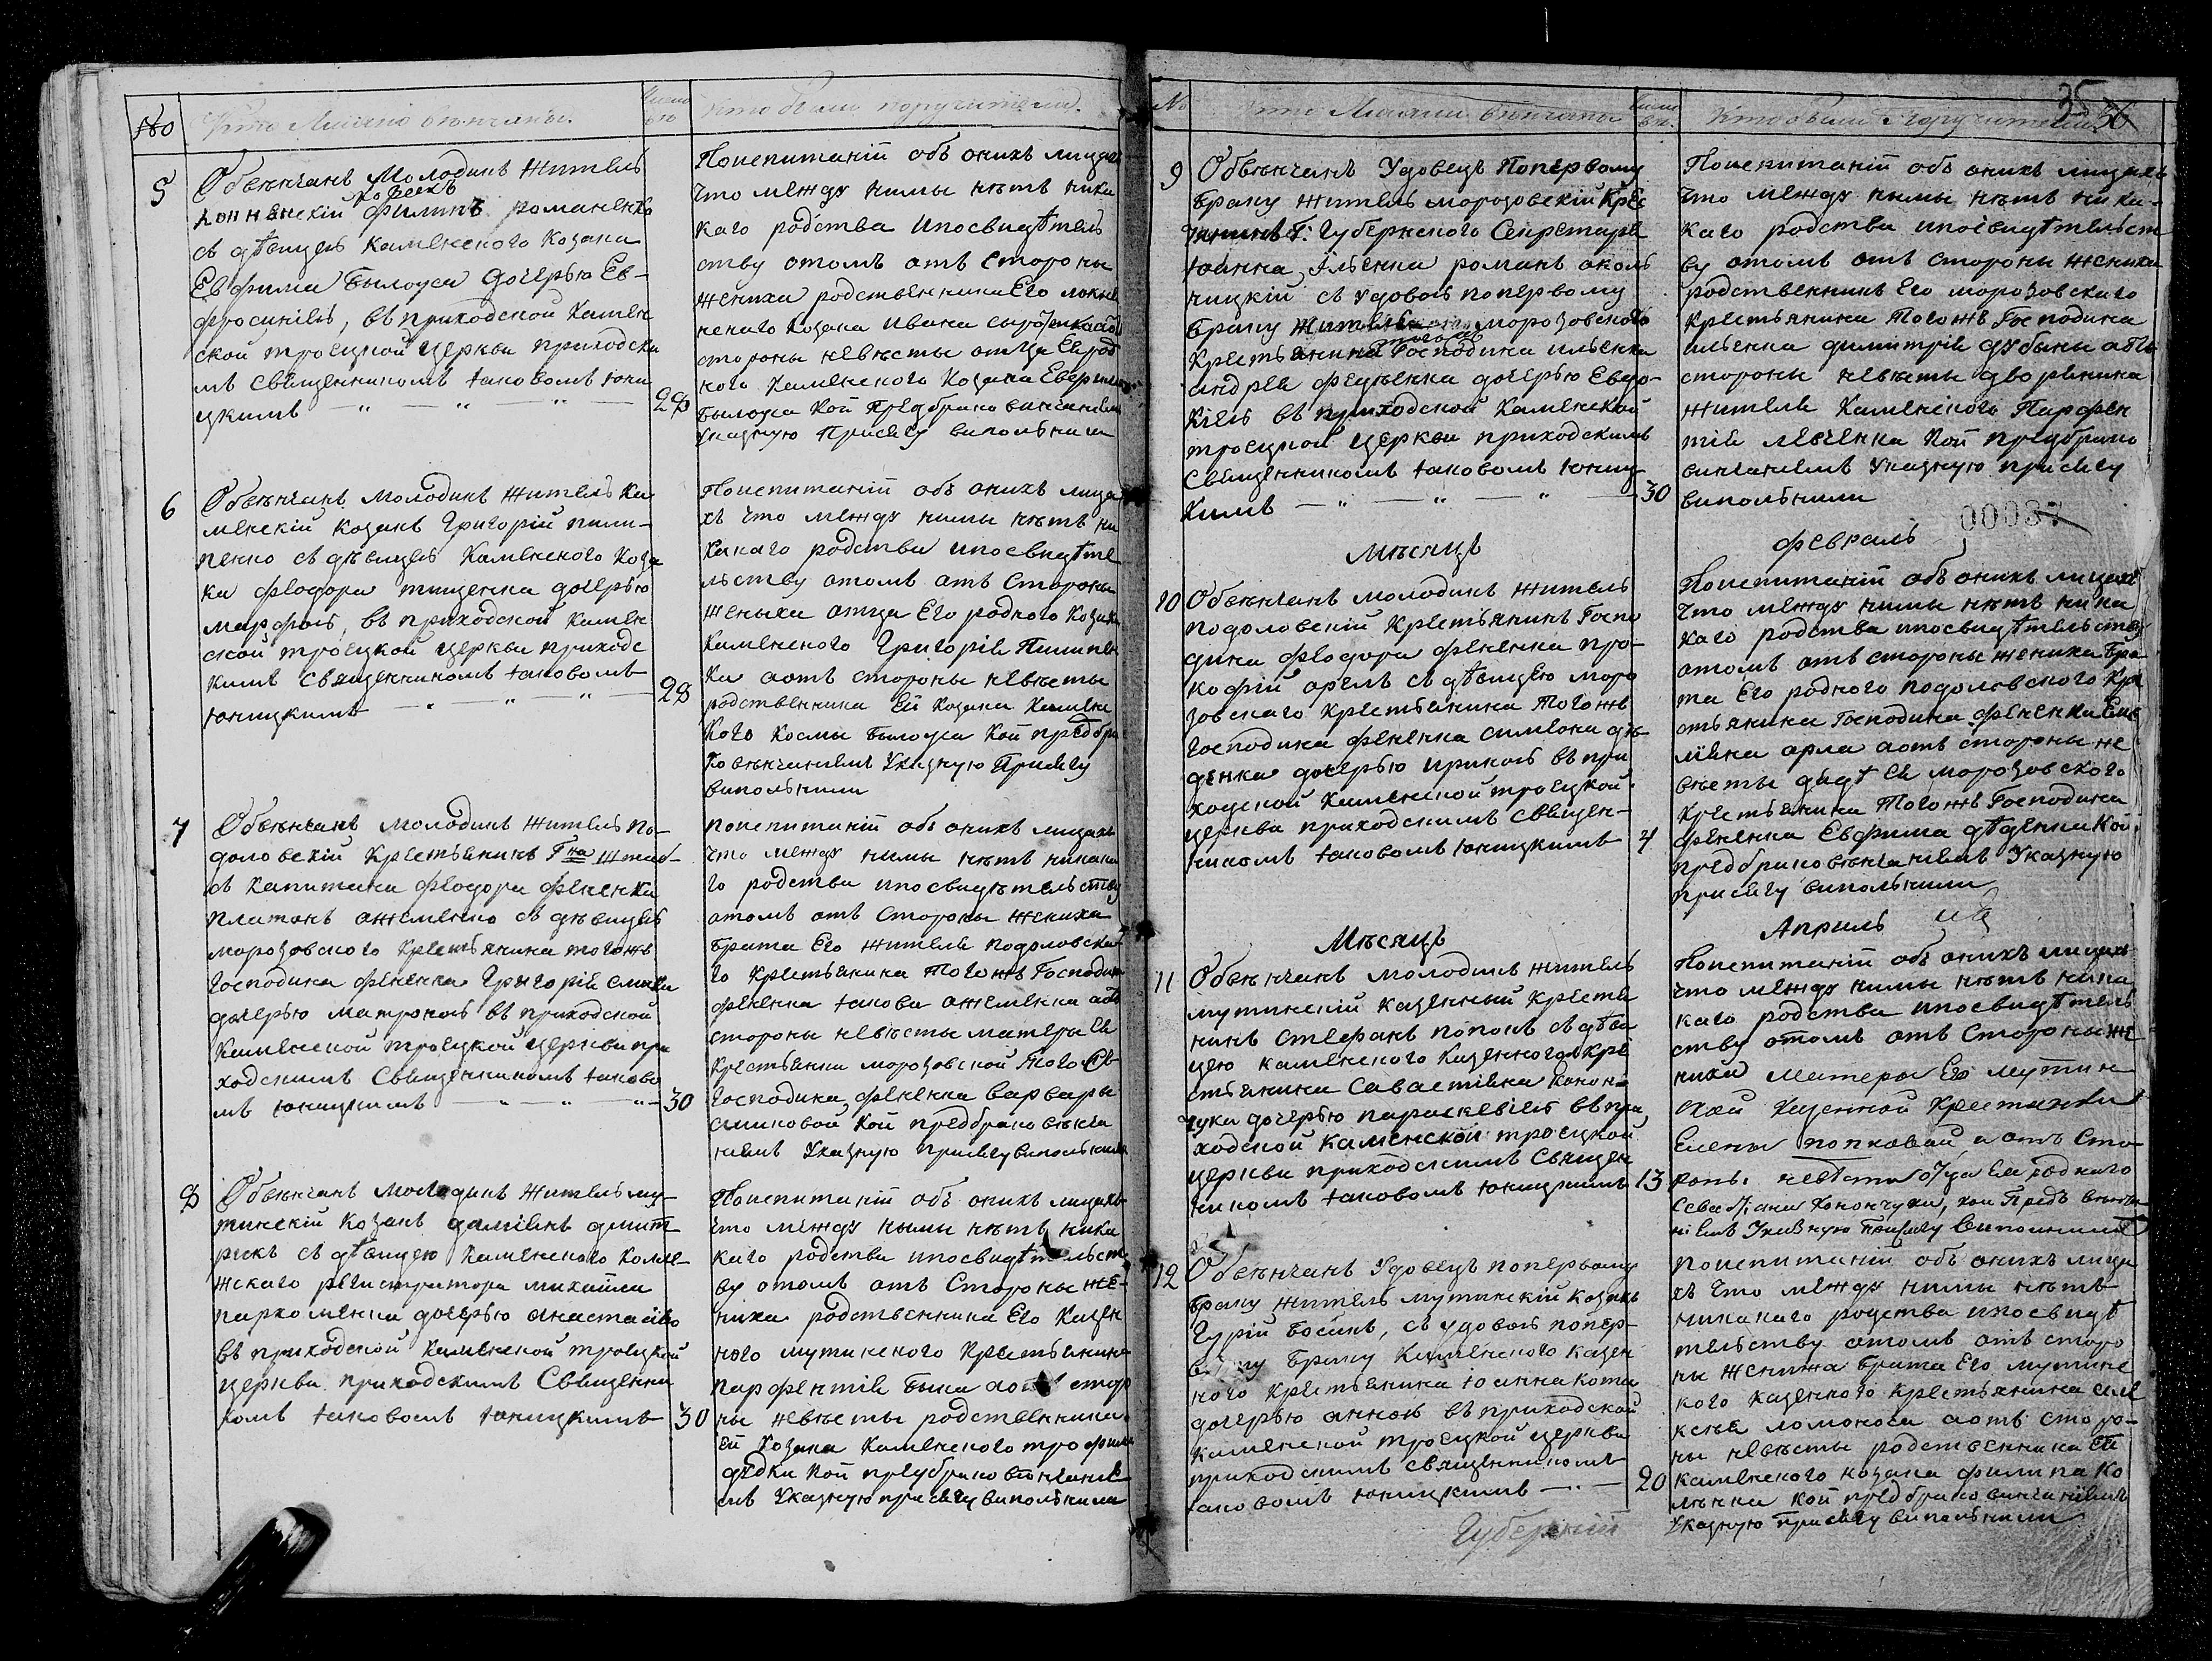 №
Кто Имянно венчаны.
Число
Кто были поручители.
5
Обвѣнчанъ Молодикъ житель
козакъ
филипъ романенко
съ дѣвицею каменского Козака
Евфима Былоуса дочерью Ев-
фросиніею, въ приходской Камен
ской троецкой церкви приходски
мъ священникомъ Іаковомъ Юни
цкимъ — „ — „ — „ —
28
Поиспитаній объ онихъ лицах
что между нимы нѣтъ ника
каго родства ипосвидѣтель
ству отомъ отъ Стороны
жениха родственника Его
Козака Ивана
стороны невѣсты отца Ея род
ного Каменского Козака
Былоуса кой предбрако винчаніем
Указную Присягу виполнили
6
Обвѣнчанъ молодикъ житель Ка
менскій козакъ Григорій пили-
пенко съ дѣвицею Каменского Коза
ка феодора тищенка дочерью
марфою, въ приходской камен
ской троецкой церкви приходс
кимъ Священникомъ Іаковомъ
Юницкимъ — „ — „ — „ —
28
Поиспитаній объ онихъ лица
хъ что между нимы нѣтъ ни
какаго родства ипосвидѣте
льству отомъ отъ Стороны
женыха отца Его родного Козака
Каменского Григорія Пилипен
ка аотъ стороны невѣсты
родственника Ей козака Каменс
кого Космы Былоуса кой предбра
ко вѣнчаніемъ Указную Присягу
виполнили
7
Обвѣнчанъ молодикъ житель по-
доловскій крестьянинъ Гна штаб-
съ капитана феодора фененка
платонъ ожеменко съ дѣвицею
морозовского крестьянина тогожъ
Господина фененка Григорія
дочерью матроною въ приходской
Каменской троецкой церкви при
ходскимъ Священникомъ Іаково
мъ Юницкимъ — „ — „ — „ —
30
поиспитаній объ онихъ лицахъ
что между нимы нѣтъ никака
го родства ипосвидѣтельству
отомъ отъ Стороны жениха
брата Его жителя подоловска
го крестьянина тогожъ Господина
фененка Іакова ожеменка аотъ
стороны невѣсты матеры Ея
крестьянки морозовской того жъ
Господина фененка варвары
кой предбрако вѣнча
ніемъ Указную присягу виполнили
8
Обвѣнчанъ молодикъ житель му-
тинскій козакъ даміянъ дмит-
рикъ съ дѣвицею каменского колле-
жскаго регистратора михаила
пархоменка дочерью анастасіею
въ приходской каменской троецкой
церкви приходскимъ Священни
комъ Іаковомъ Юницкимъ
30
Поиспитаній объ онихъ лицахъ
что между нымы нѣтъ ника
каго родства ипосвидѣтельст
ву отомъ отъ Стороны же-
ниха родственника Его казен
ного мутинского крестьянина
парфентія быка аотъ стор
ны невѣсты родственника
Ей козака каменского трофима
дѣдка кой предбрако вѣнчаніе
мъ Указную присягу виполнили
№
Кто Имянно венчаны
Число
Кто были Поручители
35
36
9
Обвѣнчанъ Удовецъ Попервому
браку житель морозовскій Крес
тянинъ Г: Губернского Секретаря
Іоанна Ильенка романъ околь
чицкій съ удовою попервому
браку морозовского
того жъ
крестьянина Господина ильенка
андрея феденка дочерью Евдо-
кіею въ приходской Каменской
троецкой церкви приходскимъ
Священникомъ Іаковомъ Юниц-
кимъ — „ — „ — „ —
30
Поиспитаній объ онихъ лицахъ
что между нымы нѣтъ ника-
каго родства ипосвидѣтельст
ву отомъ отъ стороны жениха
родственникъ Его морозовскаго
крестьянина тогожъ Господина
ильенка димитрія дубыны аотъ
стороны невѣсты дворянина
жителя Каменского Парфен
тія левченка кой предбрако
винчаніемъ Указную присягу
виполнили
00037
Мѣсяцъ
февраль
10
Обвѣнчанъ молодикъ житель
подоловскій крестьянинъ Госпо
дина феодора фененка про-
кофій орелъ съ дѣвицею моро
зовскаго крестьянина тогожъ
Господина фененка симеона дѣ-
денка дочерью ириною въ при
ходской каменской троецкой
церкви приходскимъ Священ-
никомъ Іаковомъ Юницкимъ
4
Поиспитаній объ онихъ лицахъ
что между нимы нѣтъ ника
каго родства ипосвидѣтельству
отомъ отъ стороны жениха бра
та Его родного подоловского Кре
стьянина Господина фененка Еме
ліяна орла аотъ стороны не
вѣсты дядѣ Ея морозовского
крестьянина тогожъ Господина
фененка Евфима дѣденка кой
предбрако вѣнчаніемъ Указную
присягу виполнили
Мѣсяцъ
Апрыль
11
Обвѣнчанъ молодикъ житель
мутинскій казенный крестья
нинъ стефанъ попокъ съ дѣви
цею каменского казенного кре
стьянина Савастіяна канон-
чука дочерью параскевіею въ при
ходской каменской троецкой
церкви приходскимъ Священ
никомъ Іаковомъ Юницкимъ
13
Поиспитаній объ онихъ лицахъ
что между нимы нѣтъ ника
каго родства ипосвидѣтель
ству отомъ отъ Стороны же
ниха матеры Его мутин
ской Казенной Крестянки
Елены попковой, а отъ Сто
роны невѣсты отца Ея родного
Севастіана Канончука, кои Предъ вѣнча
ніемъ Указную Присягу виполнили
12
Обвѣнчанъ Удовецъ попервому
браку житель мутинскій козакъ
Гурій босикъ, съ удовою попер-
вому браку Каменского казен
ного крестьянина Іоанна кота
дочерью анною въ приходской
каменской троецкой церкви
приходскимъ священникомъ
Іаковомъ Юницкимъ — „ —
20
поиспитаній объ онихъ лица
хъ что между нимы нѣтъ
никакаго родства ипосвидѣ
тельству отомъ отъ сторо
ны жениха брата Его мутинс
кого казенного крестьянина але
ксѣя ломоноса аотъ сторо-
ны невѣсты родственника Ей
каменского козака филипа ко
кой предбрако винчаніемъ
Указную присягу виполнили
Губерній